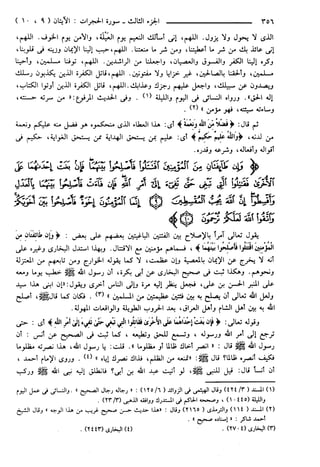 ٣٥٦ الجزء الثالث - سورة الحجرات : الآيتان (٩ ، ١٠)
الذي لا يحول ولا يزول. اللهم، إني أسألك النعيم يوم العَيْلَة، والأمن يوم الخوف. اللهم،
إني عائذ بك من شر ما أعطيتنا، ومن شر ما منعتنا. اللهم، حبب إلينا الإيمان وزينه في قلوبنا،
وكره إلينا الكفر والفسوق والعصيان، واجعلنا من الراشدين. اللهم، توفنا مسلمين، وأحينا
مسلمين، وألحقنا بالصالحين، غير خزايا ولا مفتونين. اللهم، قاتل الكفرة الذين يكذبون رسلك
ويصدون عن سبيلك، واجعل عليهم رجزك وعذابك. اللهم، قاتل الكفرة الذين أوتوا الكتاب،
إله الحق». ورواه النسائي في اليوم والليلة (١). وفي الحديث المرفوع: «من سرته حسنته،
وساءته سيئته، فهو مؤمن» (٢).
ثم قال: ﴿فَضْلًا مِّنَ اللَّهِ وَنِعْمَةً﴾ أي: هذا العطاء الذي منحكموه هو فضل منه عليكم ونعمة
من لدنه، ﴿وَاللَّهُ عَلِيمٌ حَكِيمٌ﴾ أي: عليم بمن يستحق الهداية ممن يستحق الغواية، حكيم في
أقواله وأفعاله، وشرعه وقدره.
﴿وَإِن طَائِفَتَانِ مِنَ الْمُؤْمِنِينَ اقْتَتَلُوا فَأَصْلِحُوا بَيْنَهُمَا فَإِن بَغَتْ إِحْدَاهُمَا عَلَى
الْأُخْرَى فَقَاتِلُوا الَّتِي تَبْغِي حَتَّى تَفِيءَ إِلَى أَمْرِ اللَّهِ فَإِن فَاءَتْ فَأَصْلِحُوا بَيْنَهُمَا بِالْعَدْلِ
وَأَقْسِطُوا إِنَّ اللَّهَ يُحِبُّ الْمُقْسِطِينَ (٩) إِنَّمَا الْمُؤْمِنُونَ إِخْوَةٌ فَأَصْلِحُوا بَيْنَ أَخَوَيْكُمْ
وَاتَّقُوا اللَّهَ لَعَلَّكُمْ تُرْحَمُونَ (١٠)﴾
يقول تعالى آمراً بالإصلاح بين الفئتين الباغيتين بعضهم على بعض : ﴿وَإِن طَائِفَتَانِ مِنَ
الْمُؤْمِنِينَ اقْتَتَلُوا فَأَصْلِحُوا بَيْنَهُمَا﴾، فسماهم مؤمنين مع الاقتتال. وبهذا استدل البخاري وغيره على
أنه لا يخرج عن الإيمان بالمعصية وإن عظمت، لا كما يقوله الخوارج ومن تابعهم من المعتزلة
ونحوهم. وهكذا ثبت في صحيح البخاري عن أبي بكرة، أن رسول الله ﷺ خطب يوما ومعه
على المنبر الحسن بن علي، فجعل ينظر إليه مرة وإلى الناس أخرى ويقول: «إن ابني هذا سيد
ولعل الله تعالى أن يصلح به بين فئتين عظيمتين من المسلمين» (٣). فكان كما قال ﷺ، أصلح
الله به بين أهل الشام وأهل العراق، بعد الحروب الطويلة والواقعات المهولة.
وقوله تعالى: ﴿فَإِن بَغَتْ إِحْدَاهُمَا عَلَى الْأُخْرَى فَقَاتِلُوا الَّتِي تَبْغِي حَتَّى تَفِيءَ إِلَى أَمْرِ اللَّهِ﴾ أي : حتى
ترجع إلى أمر الله ورسوله ، وتسمع للحق وتطيعه ، كما ثبت في الصحيح عن أنس : أن
رسول الله ﷺ قال : «انصر أخاك ظالماً أو مظلوما». قلت: يا رسول الله، هذا نصرته مظلوما
فكيف أنصره ظالماً؟ قال ﷺ: «تمنعه من الظلم، فذاك نصرك إياه» (٤). وروى الإمام أحمد ،
أن أنساً قال: قيل للنبي ﷺ، لو أتيت عبد الله بن أبي؟ فانطلق إليه نبي الله ﷺ وركب
(١) المسند (٤٢٤/٣) وقال الهيثمي في الزوائد (١٢٥/٦) : «رجاله رجال الصحيح». والنسائي في عمل اليوم
والليلة (١٠٤٤٥) ، وصححه الحاكم في المستدرك ووافقه الذهبي (٢٣/٣) .
(٢) المسند (١١٤) والترمذي (٢١٦٥) وقال: «هذا حديث حسن صحيح غريب من هذا الوجه» وقال الشيخ
أحمد شاكر : «إسناده صحيح» .
(٣) البخاري (٢٧٠٤) . (٤) البخاري (٢٤٤٣) .